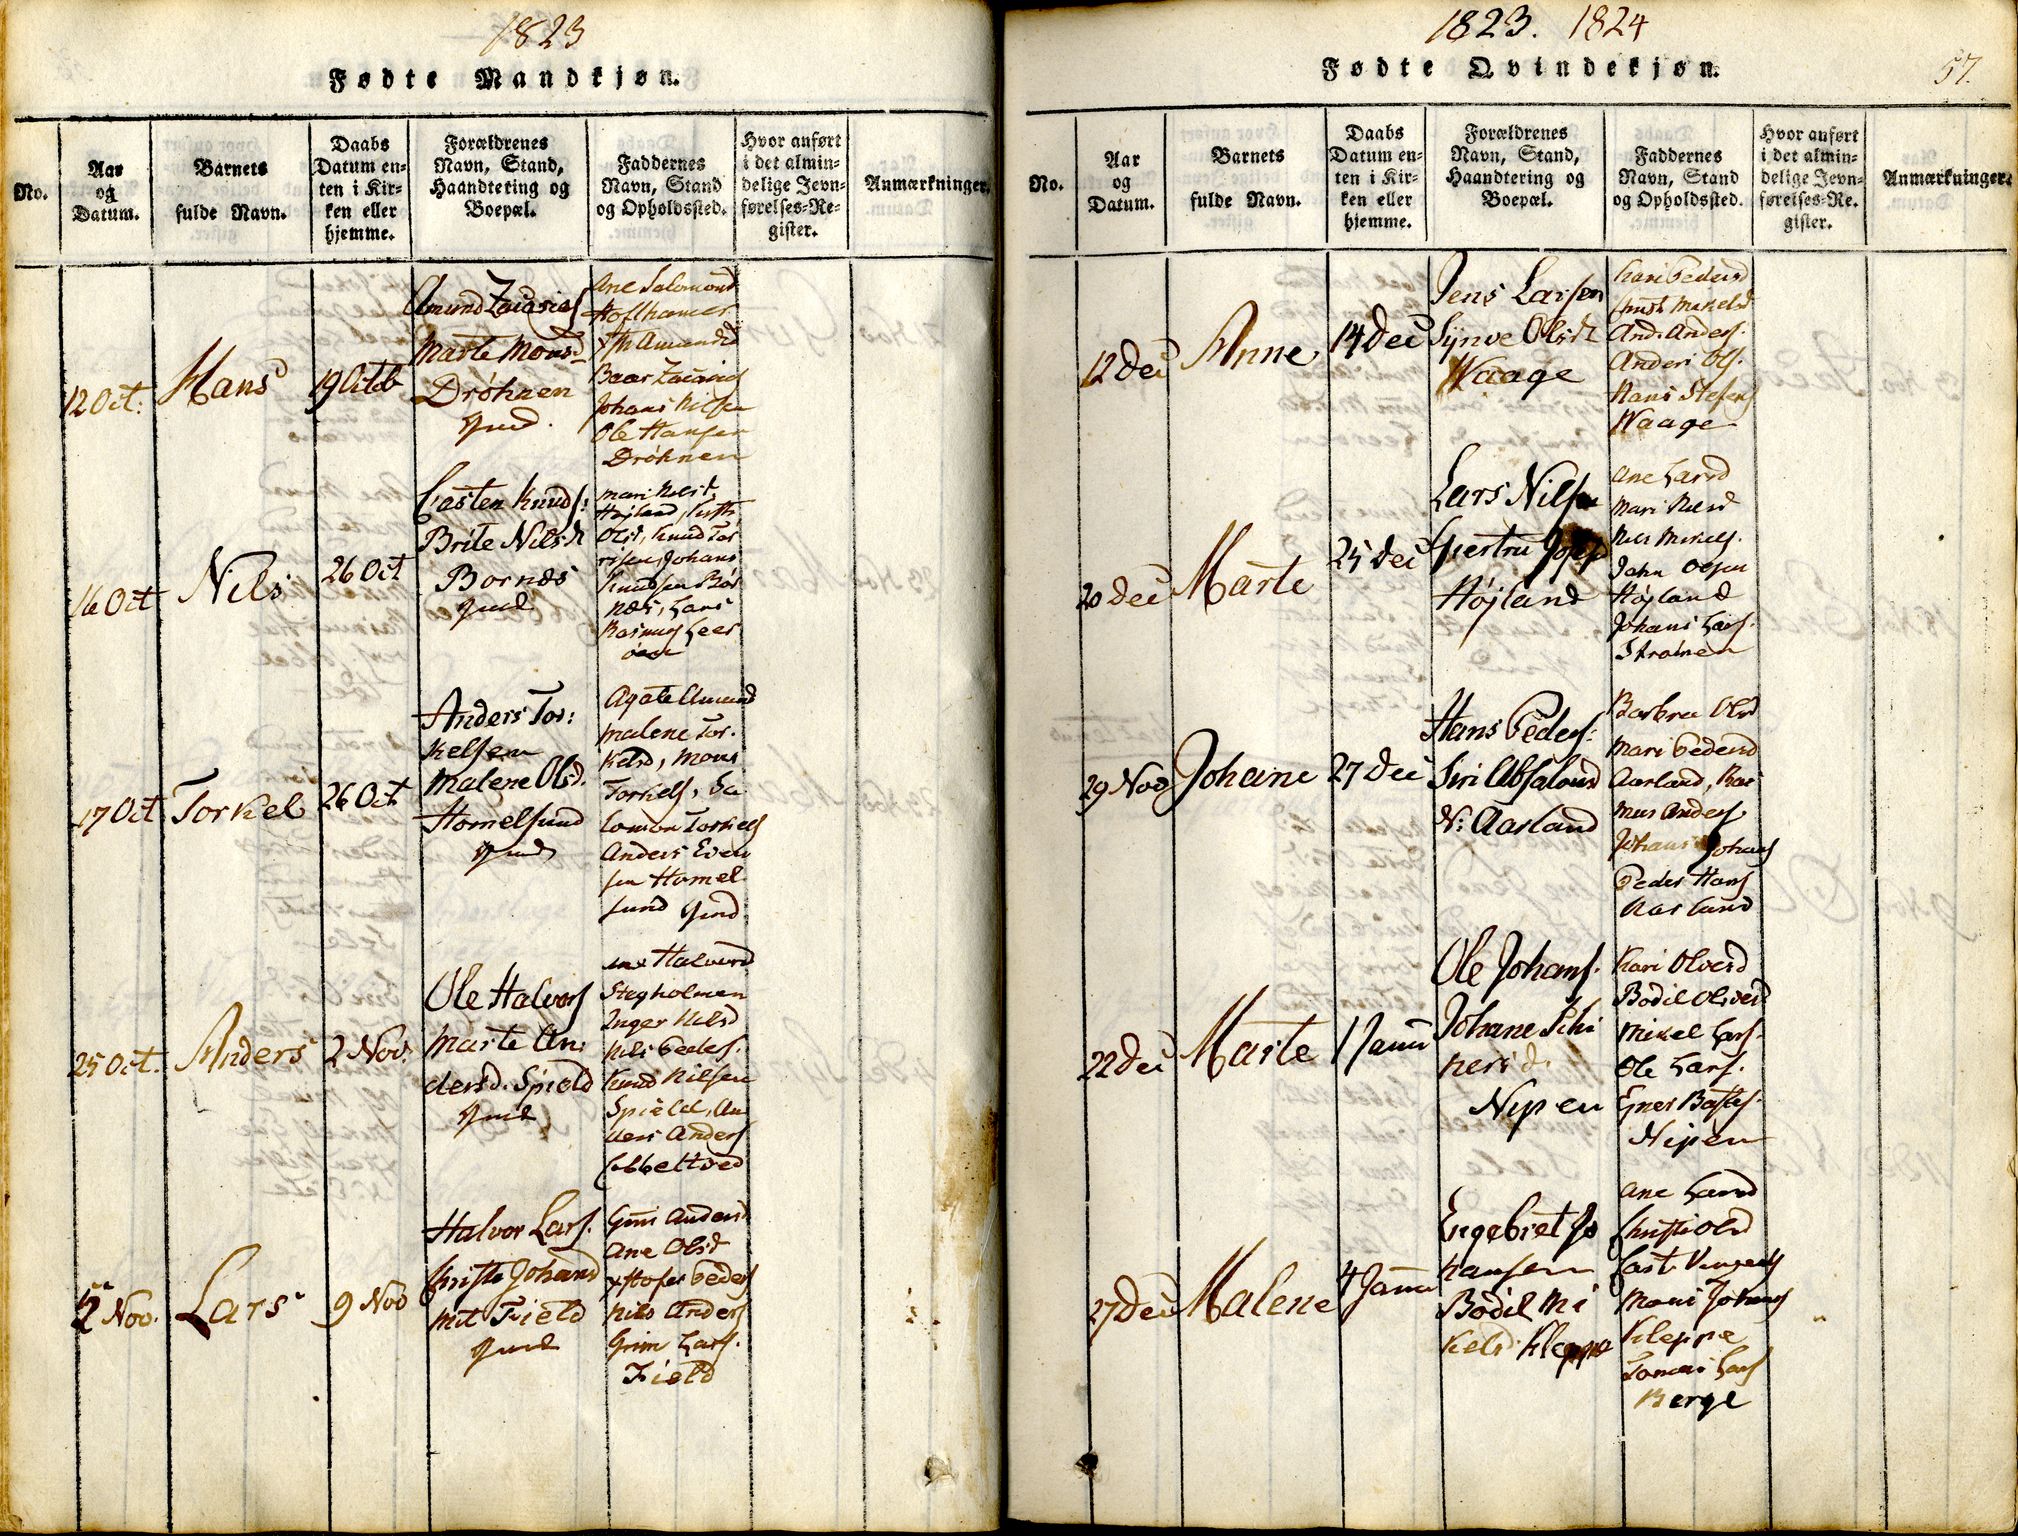 1823
Fødte Mandkjøn.
No.
Aar
og
Datum.
Barnets
fulde Navn.
Daabs
Datum en-
ten i Kir-
ken eller
hjemme.
Forældrenes
Navn, Stand,
Haandtering og
Boepæl.
Faddernes
Navn, Stand
og Opholdssted.
Hvor anført
i det almin-
delige Jevn-
førelses-Re-
gister.
Anmærkninger.
12 Oct:
Hans
19 Octob
Amund Zacarias
Marte Monsd
Dröhnen
Ane Salomonsd
Baar Zacarias
Johans Nilsen
Ole Hansen
Dröhnen
16 Oct
Nels
26 Oct
Casten Knuds:
Brite Nilsd
Bornæs
Mari Nelsd,
Højland,
Olsd, Knud Tor
risen, Johans
Knudsen Bör
næs, Lars
Rasmus Leer
öen
17 Oct
Torkel
26 Oct
Anders Tor:
kelsen
Malene Olsd.
Homelsund
Agate Amund
Malene Tor.
kelsd, Mons
Torkels, Sa
lomon Torkels
Anders Even
sen Homel
sund
25 Oct.
Anders
2 Nov.
Ole Halvors
Marte An:
dersd. Spield
Halvorsd
Stegholmen
Inger Nilsd
Nils Peders.
Knud Nilsen
Spield, An
ders Anders
5 Nov.
Lars
9 Nov
Halvor Lars.
Christi Johansd
mit Field
Guri Andersd
Ane Olsd
Peders
Nils Anders
Grim Lars.
Field
1823. 1824
Fødte Qvindekjøn.
57.
No.
Aar
og
Datum.
Barnets
fulde Navn.
Daabs
Datum en-
ten i Kir-
ken eller
hjemme.
Forældrenes
Navn, Stand,
Haandtering og
Boepæl.
Faddernes
Navn, Stand
og Opholdssted.
Hvor anført
i det almin-
delige Jevn-
førelses-Re-
gister.
Anmærkninger.
12 Dec
Anne
14 Dec
Jens Larsen
Synve Olsd
Waage
Kari Pedersd
And. Anders.
Anders Ols.
Hans Stefens
Waage
20 Dec
Marte
25 Dec
Lars Nilsen
Giertru
Højland
Ane Larsd
Mari Nilsd
Nils Mikels.
John Olsen
Højland
Johans Lars.
Strömen
29 Nov
Johane
27 Dec
Hans Peders:
Siri Absalons
N: Aarland
Barbru Olsd
Mari Pedersd
Aarland, Ras
mus Anders
Johans Johans
Peder Hans
Aarland
22 Dec
Marte
1 Janu
Ole Johans.
Johane
Nipen
Kari Olversd
Bodil Olversd
Mikel Lars.
Ole Lars.
Nipen
27 Dec
Malene
4 Janu
Engebret Jo
hansen
Bodil Mi
kelsd Kleppe
Ane Larsd
Christi Olsd
Mons Johans
Kleppe
Tomas Lars
Berge